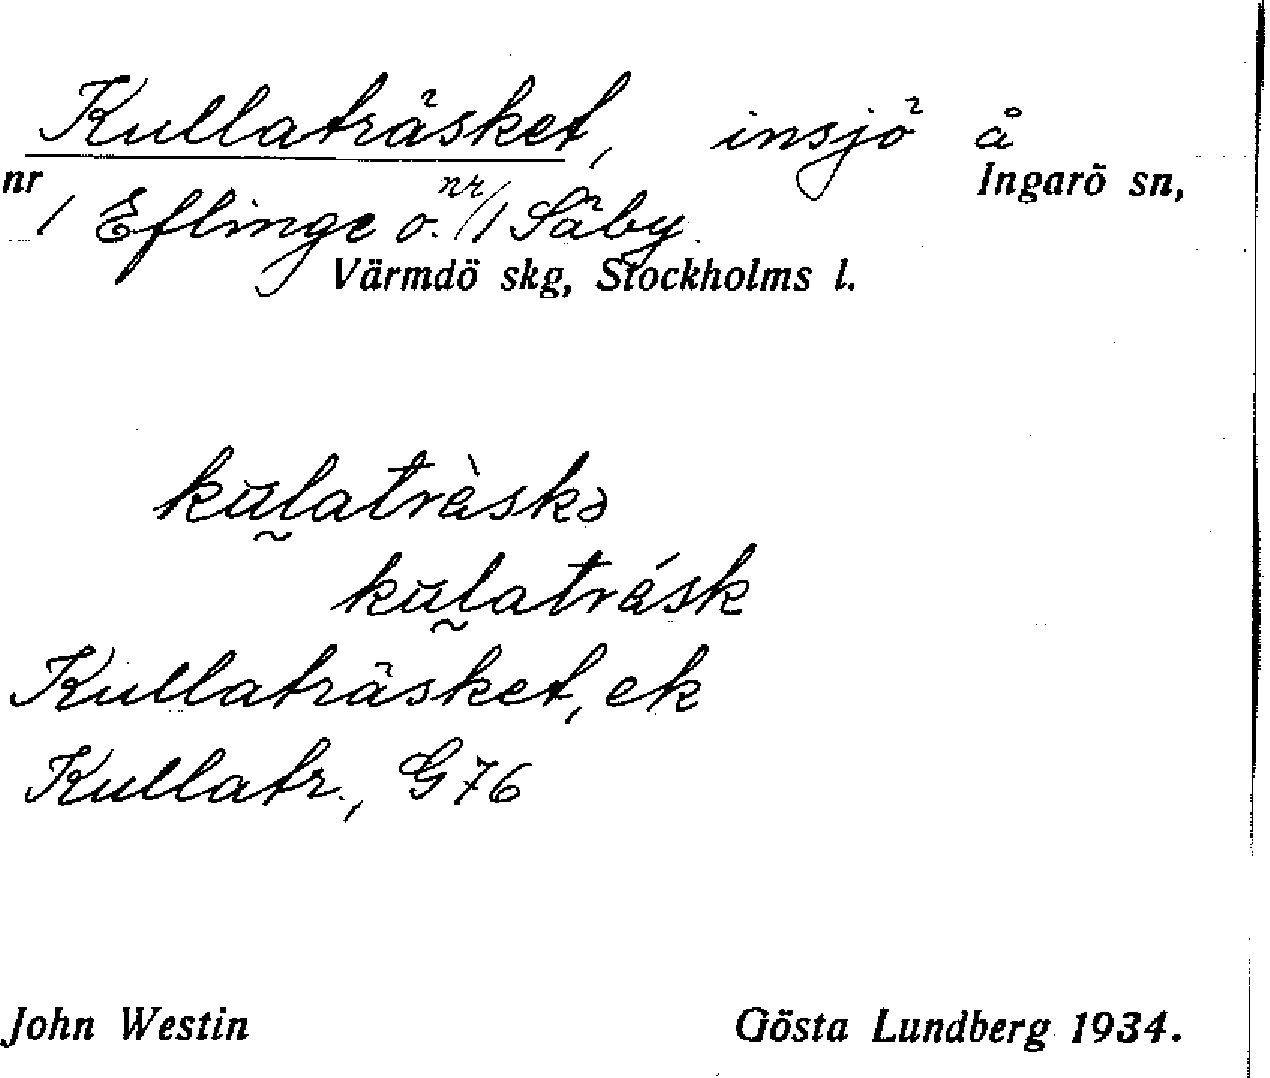 Kullaträsket, insjö å
Ingarö sn,
nr 1 Eflinge o. nr 1 Säby
Värmdö skg, Stockholms l.
kūlatràskə
kūlatrásk
Kullaträsket, ek
Kullatr., G 76
John Westin Gösta Lundberg 1934.